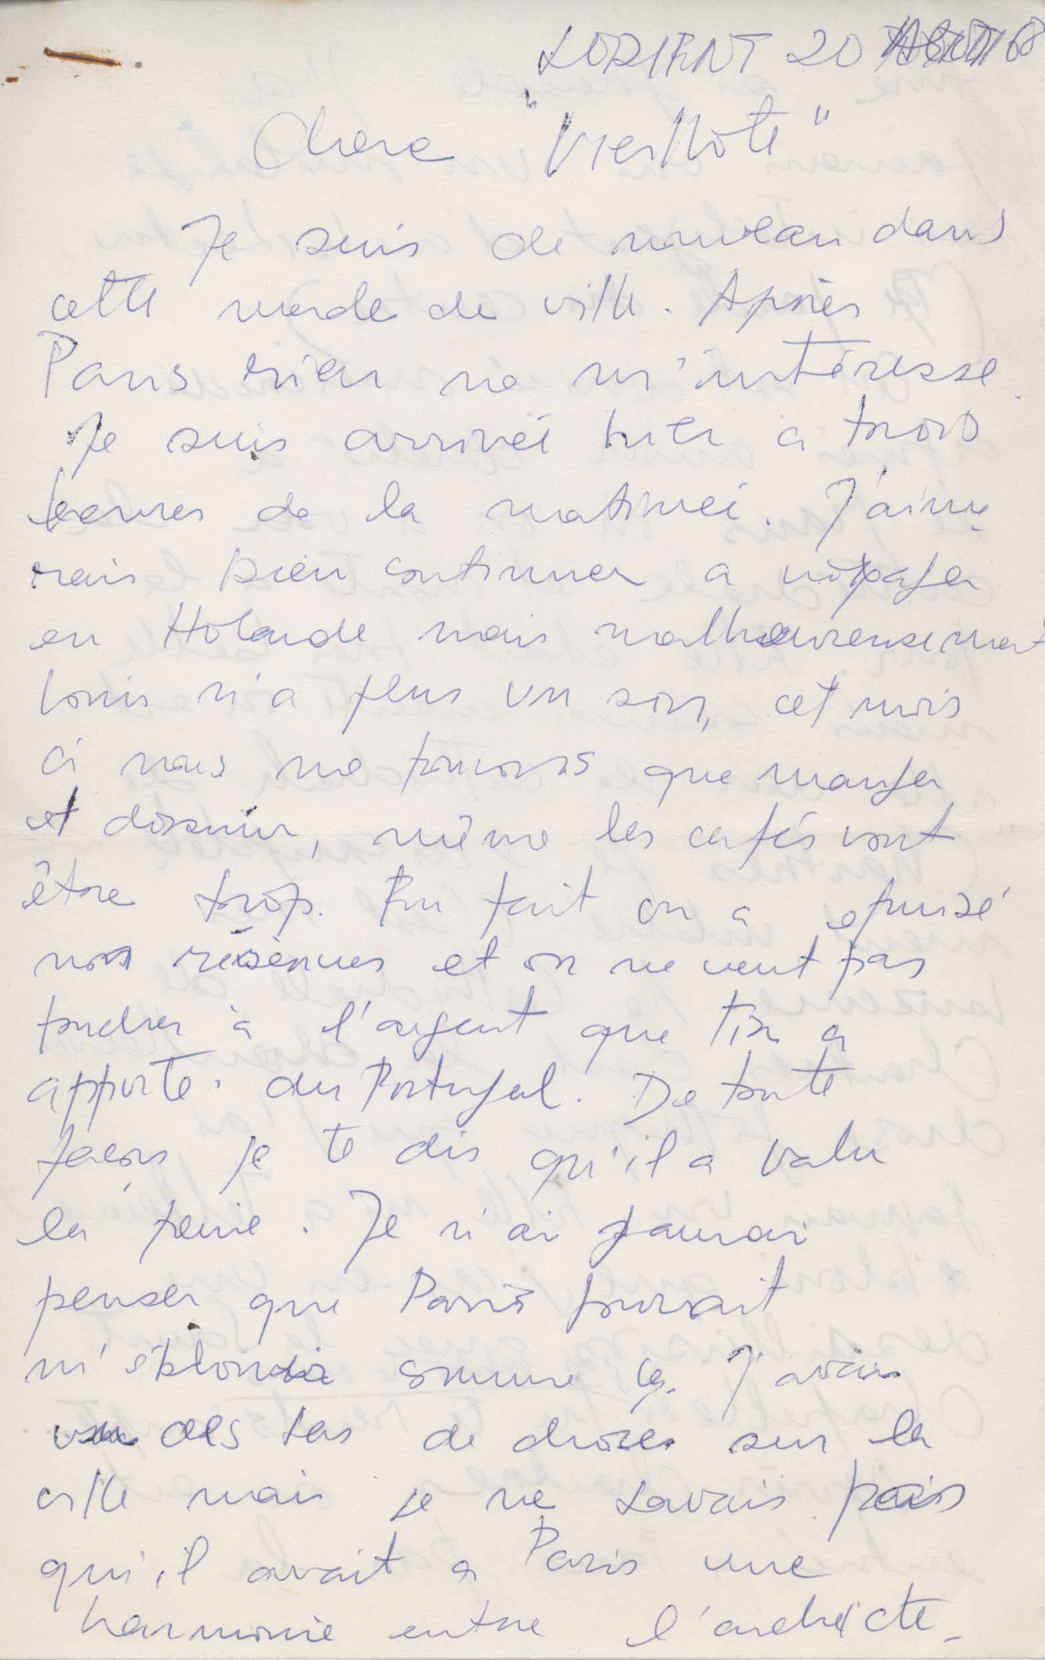 LORIENT 20 AOUT 68
Chere "Vieillote"
Je suis de nouveau dans
cette merde de ville. Après
Paris rien ne m'intéresse.
Je suis arriveé hier à trois
heures de la matineé. J'aime
rais bien continuer a voyager
en Holande mais malheureusement
Louis n'a plus un sou, cet mois
ci nous ne pouvons que manger
et dormir, même les cafés vont
être trop. En fait on a epuisé
nos réserves et on ne veut pas
toucher à l'argent que
apporté du Portugal. De toute
façon je te dis qu'il a valu
la peine. Je n'ai jamai
penser que Paris pouvait
m'éblouir comme ça. J'avais
vu des tas de choses sur la
ville mais je ne savais pas
qu'il avait a Paris une
harmonie entre l'archicte_